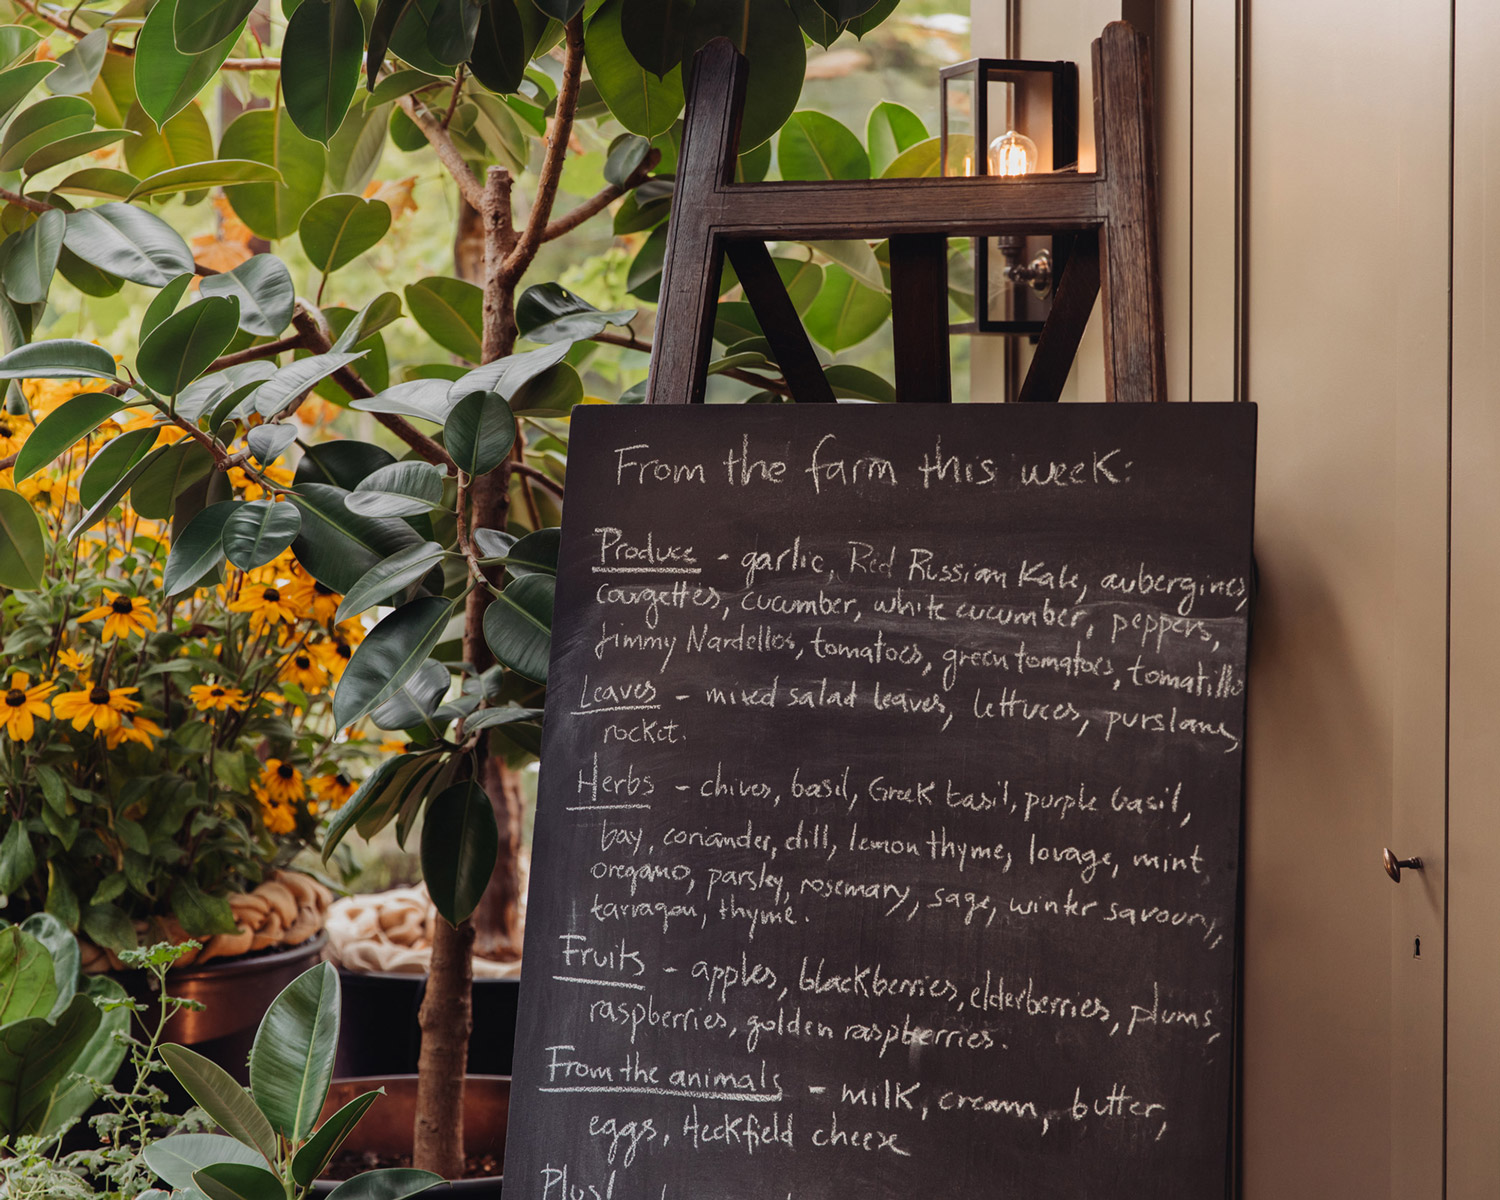 From the farm this week:
Produce - garlic, Red Russian Kale, aubergines,
courgettes, cucumber, white cucumber, peppers,
Jimmy Nardellos, tomatoes, green tomatoes, tomatillo
Leaves - mixed salad leaves, lettuces, purslane,
rocket.
Herbs - chives, basil, Greek basil, purple basil,
bay, coriander, dill, lemon thyme, lovage, mint,
oregano, parsley, rosemary, sage, winter savoury,
tarragon, thyme.
Fruits - apples, blackberries, elderberries, plums,
raspberries, golden raspberries.
From the animals - milk, cream, butter,
eggs, Heckfield cheese
Plus!